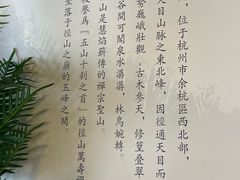 ，位于杭州市余杭區西北部，
天目山脉之東北峰，因徑通天目而
勢巍峨壯觀，古木參天，修篁疊翠
谷間可聞泉水潺潺，林鳥婉轉。
山是慧焰薪傳的禪宗聖山。
被譽爲『五山十刹之首』的徑山萬壽禪
坐落于徑山之巔的五峰之間。